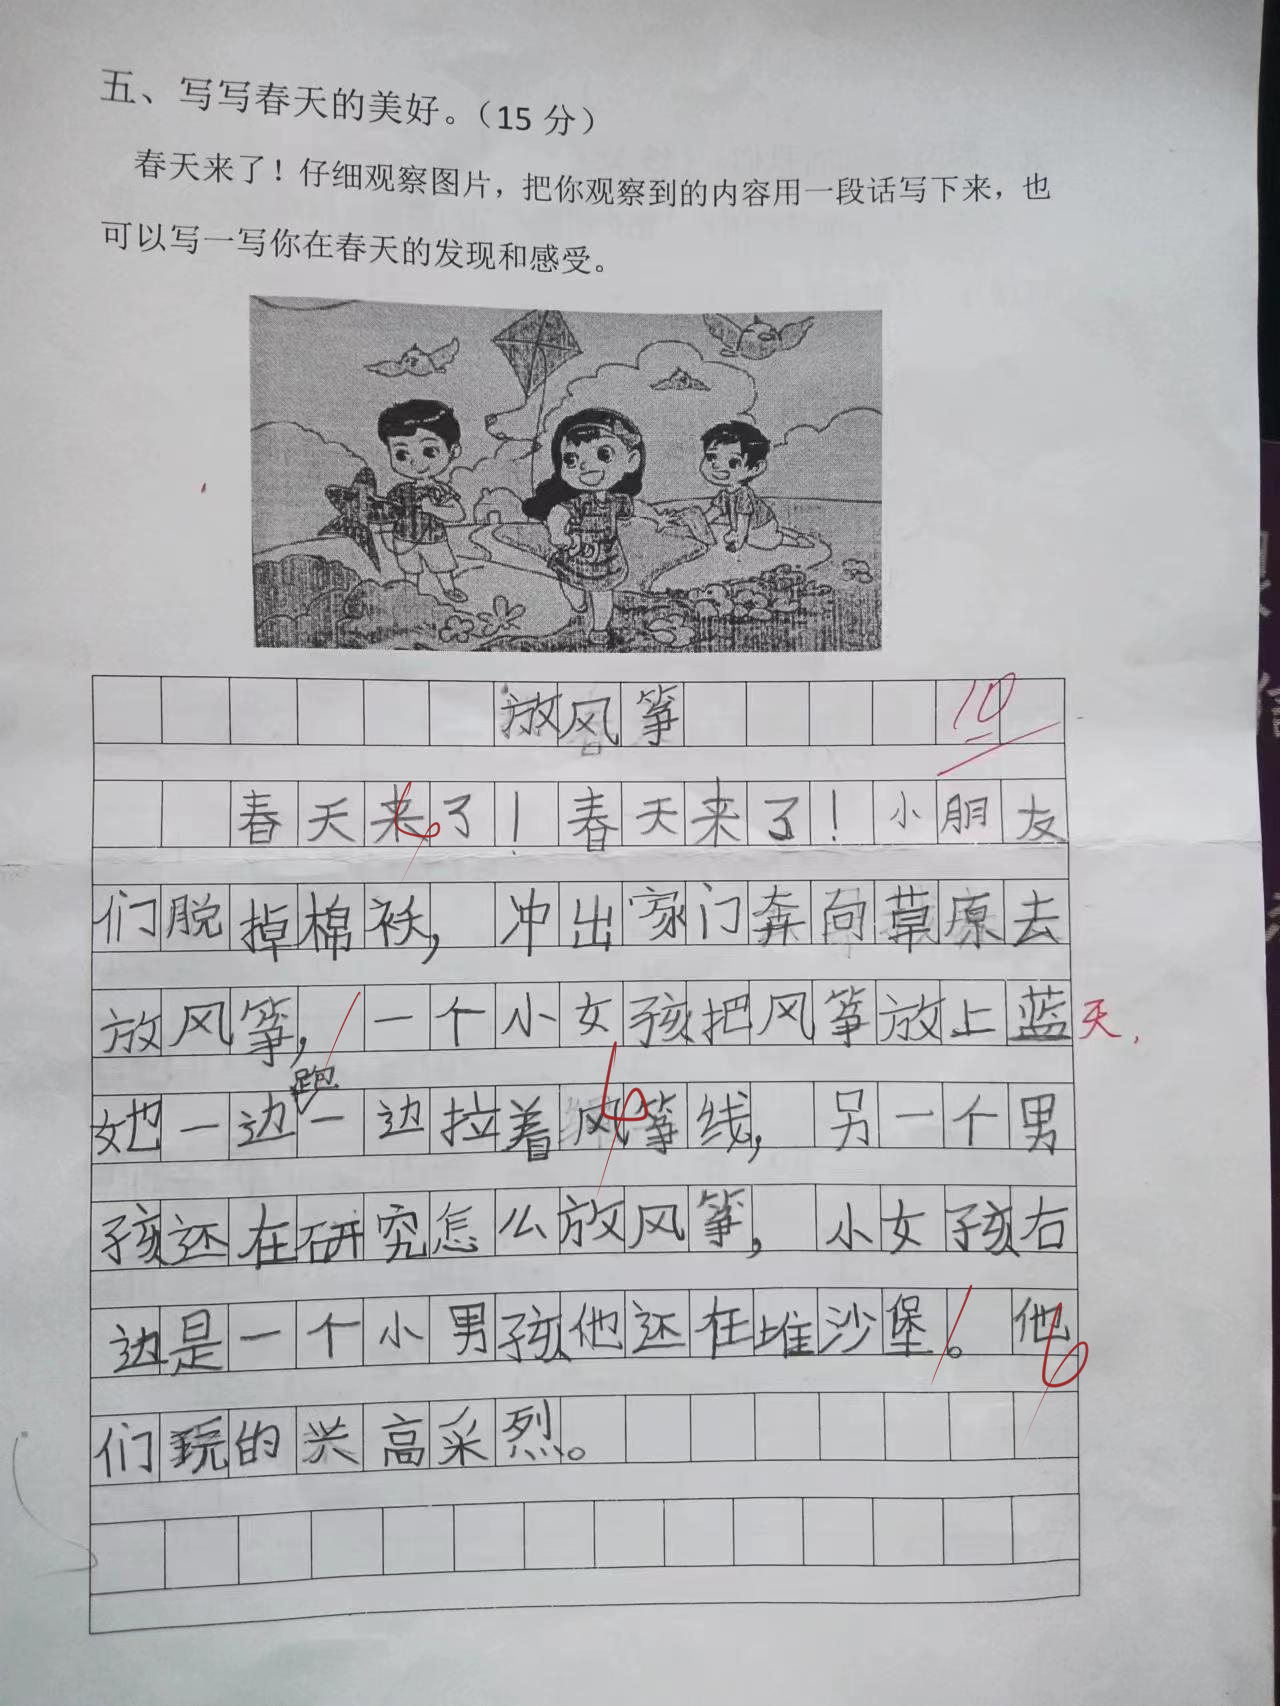 五、写写春天的美好。（15 分）
春天来了！仔细观察图片，把你观察到的内容用一段话写下来，也
可以写一写你在春天的发现和感受。
放风筝
10
春天来了！春天来了！小朋友
们脱掉棉袄，冲出家门奔向草原去
放风筝，一个小女孩把风筝放上蓝天，
她一边跑一边拉着风筝线，另一个男
孩还在研究怎么放风筝，小女孩右
边是一个小男孩他还在堆沙堡。他
们玩的兴高采烈。